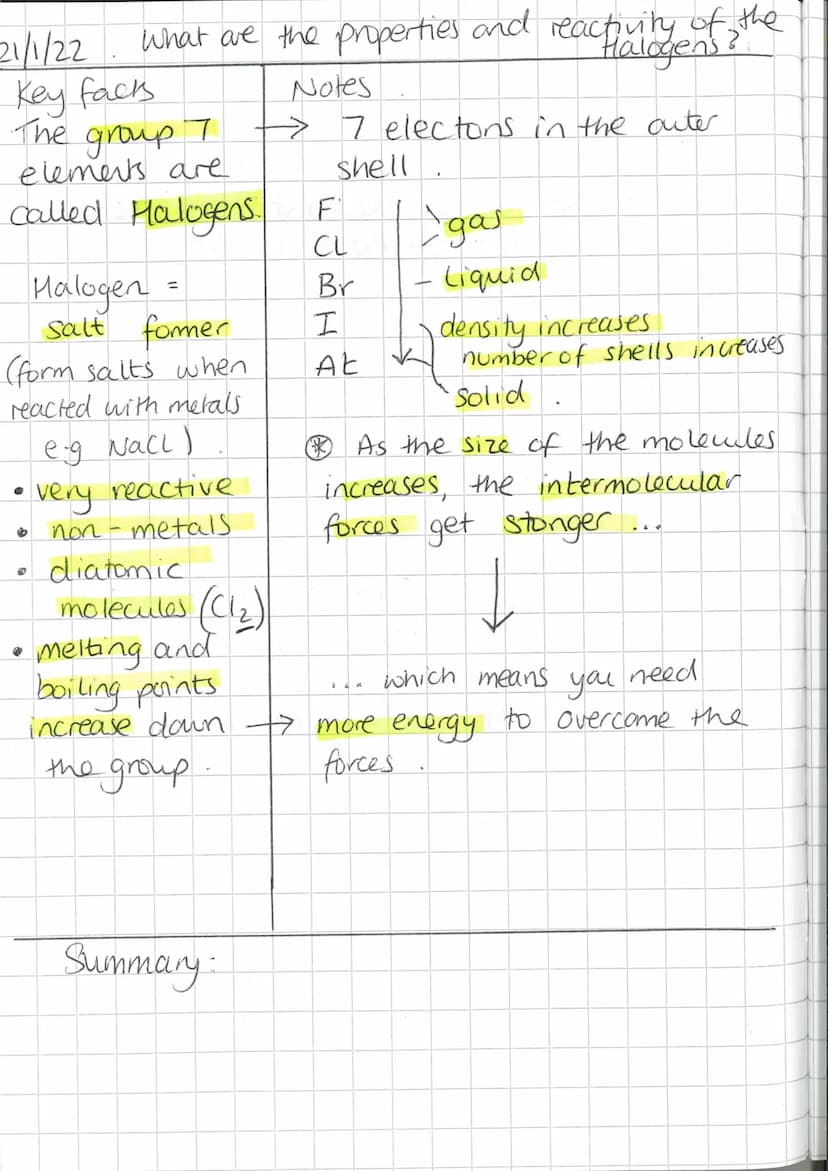 21/1/22. What are the properties and reactivity of the
Halogens?
Key facts
The group 7
elements are
called Halogens.
Halogen =
salt former
(form salts when
reacted with metals
e.g NaCl)
• very reactive
• non-metals
• diatomic
molecules (Cl2)
• melting and
boiling points
increase down →
the group.
Notes.
→ 7 electons in the outer
shell.
F
Cl
Br
I
At
gas
- Liquid
density increases
number of shells increases
solid.
* As the size of the molecules
increases, the intermolecular
forces get stonger ...
... which means you need
more energy to overcome the
forces.
Summary: